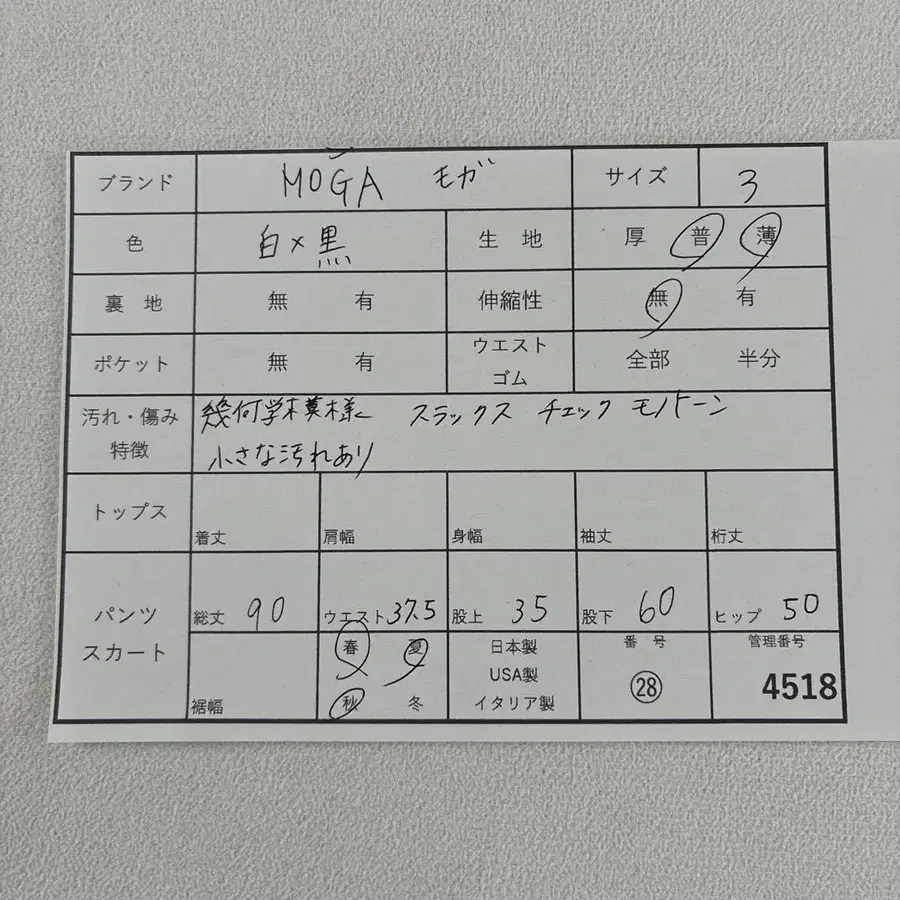 ブランド MOGA モガ サイズ 3
色 白×黒 生 地 厚 普 薄
裏 地 無 有 伸縮性 無 有
ポケット 無 有 ウエスト ゴム 全部 半分
汚れ・傷み 特徴 幾何学模様 スラックス チェック モノトーン
小さな汚れあり
トップス 着丈 肩幅 身幅 袖丈 裄丈
パンツ スカート 総丈 90 ウエスト 37.5 股上 35 股下 60 ヒップ 50
裾幅 春 夏 秋 冬 日本製 USA製 イタリア製 番 号 ㉘ 管理番号 4518